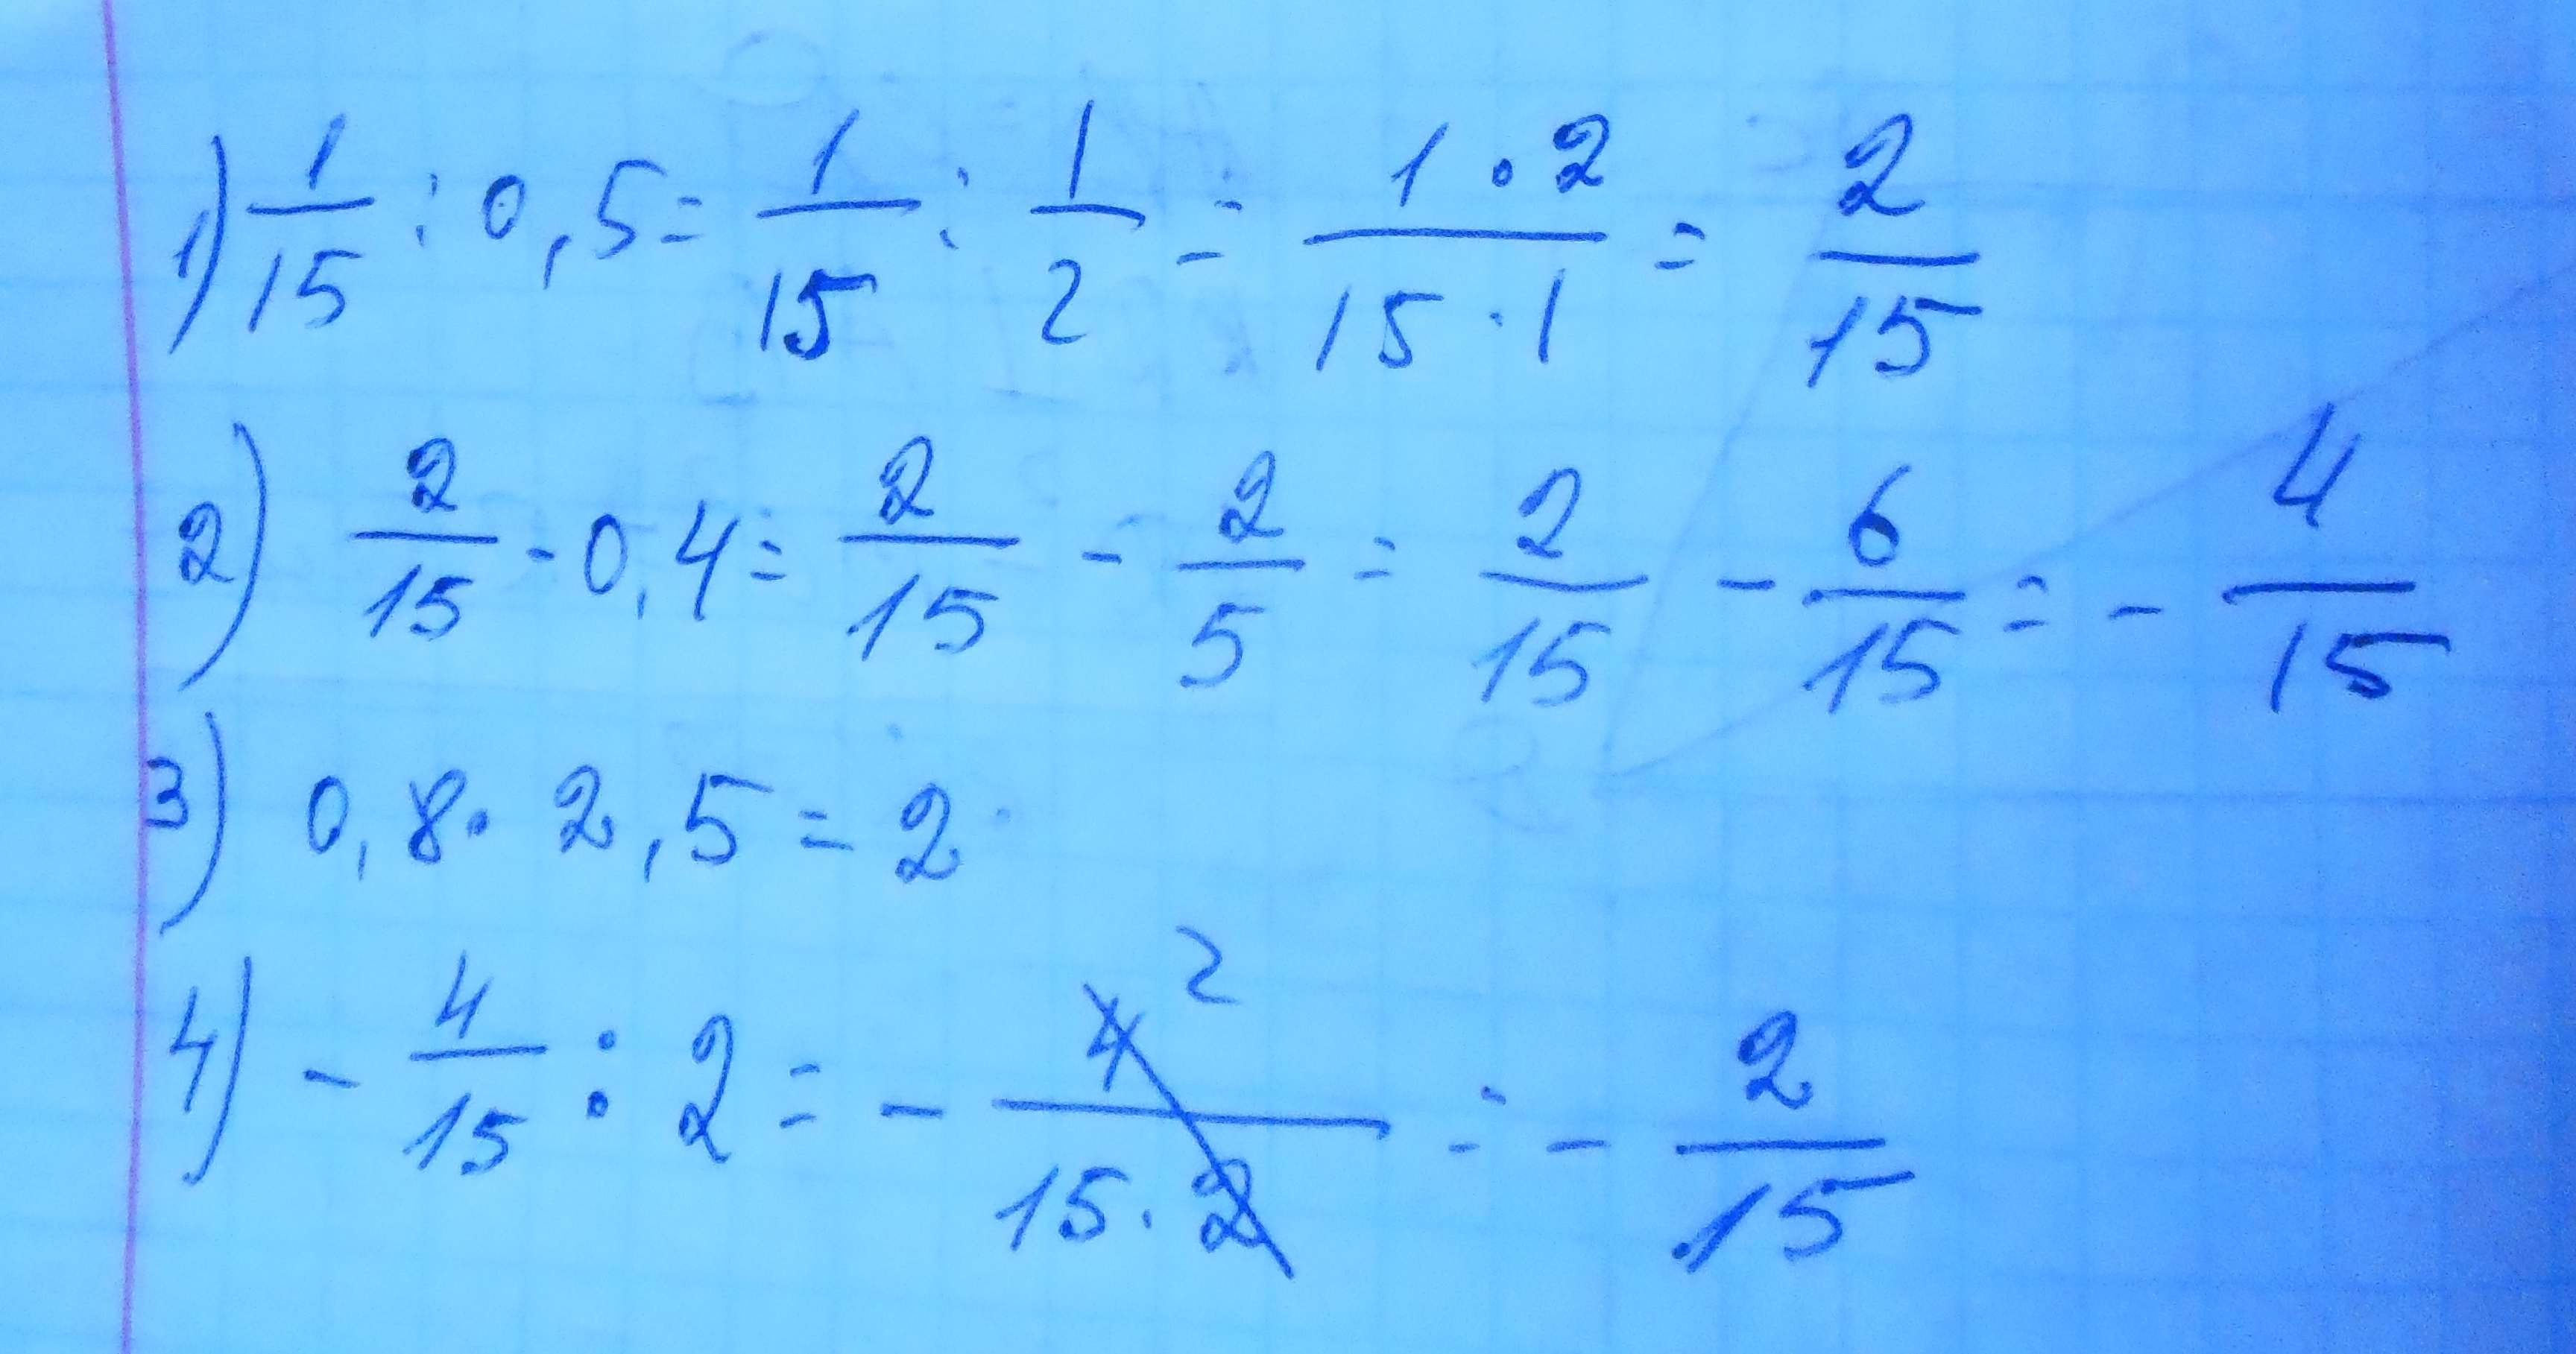 1) 1/15 : 0,5 = 1/15 : 1/2 = 1 · 2 / 15 · 1 = 2/15
2) 2/15 - 0,4 = 2/15 - 2/5 = 2/15 - 6/15 = - 4/15
3) 0,8 · 2,5 = 2
4) - 4/15 : 2 = - 4 2 / 15 · 2 = - 2/15